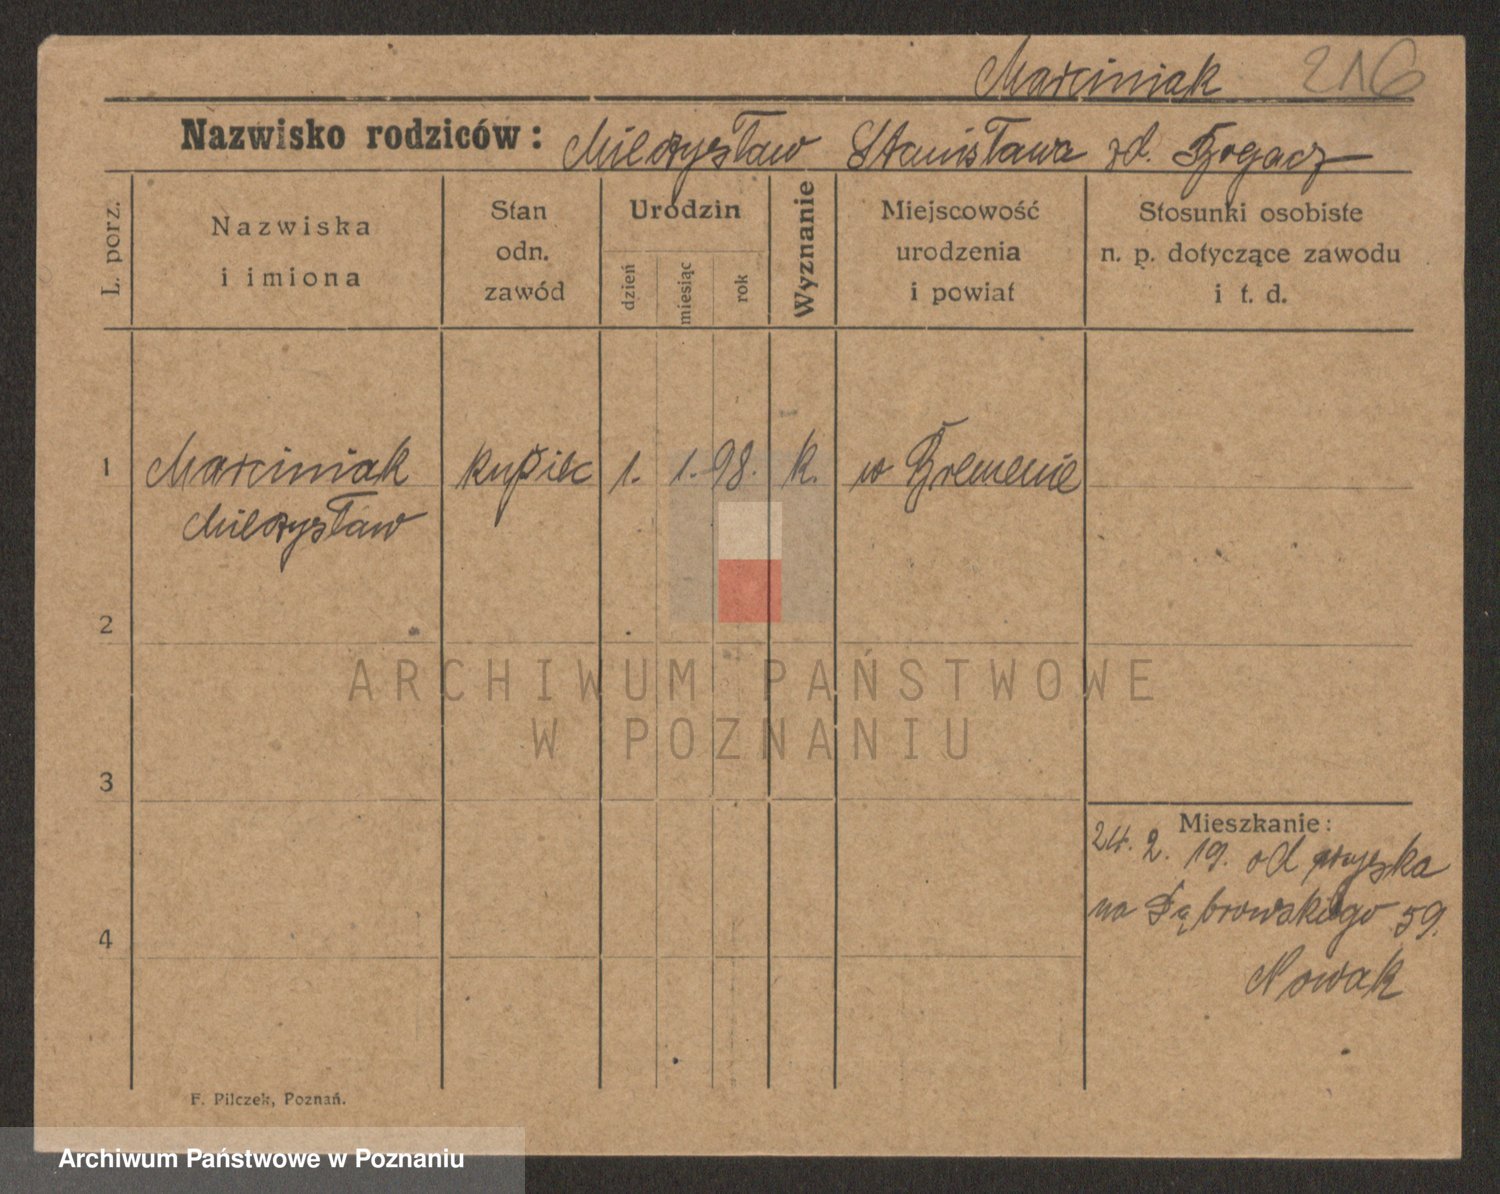 Marciniak 216
Nazwisko rodziców: Mieczysław Stanisława zd. Bogacz
L. porz.
Nazwiska
i imiona
Stan
odn.
zawód
Urodzin
dzień
miesiąc
rok
Wyznanie
Miejscowość
urodzenia
i powiat
Stosunki osobiste
n. p. dotyczące zawodu
i t. d.
1 Marciniak kupiec 1. 1. 98. k. w Bremenie
Mieczysław
2
ARCHIWUM PAŃSTWOWE
W POZNANIU
3
Mieszkanie:
24. 2. 19. od
na Dąbrowskiego 59.
4
Nowak
F. Pilczek, Poznań.
Archiwum Państwowe w Poznaniu